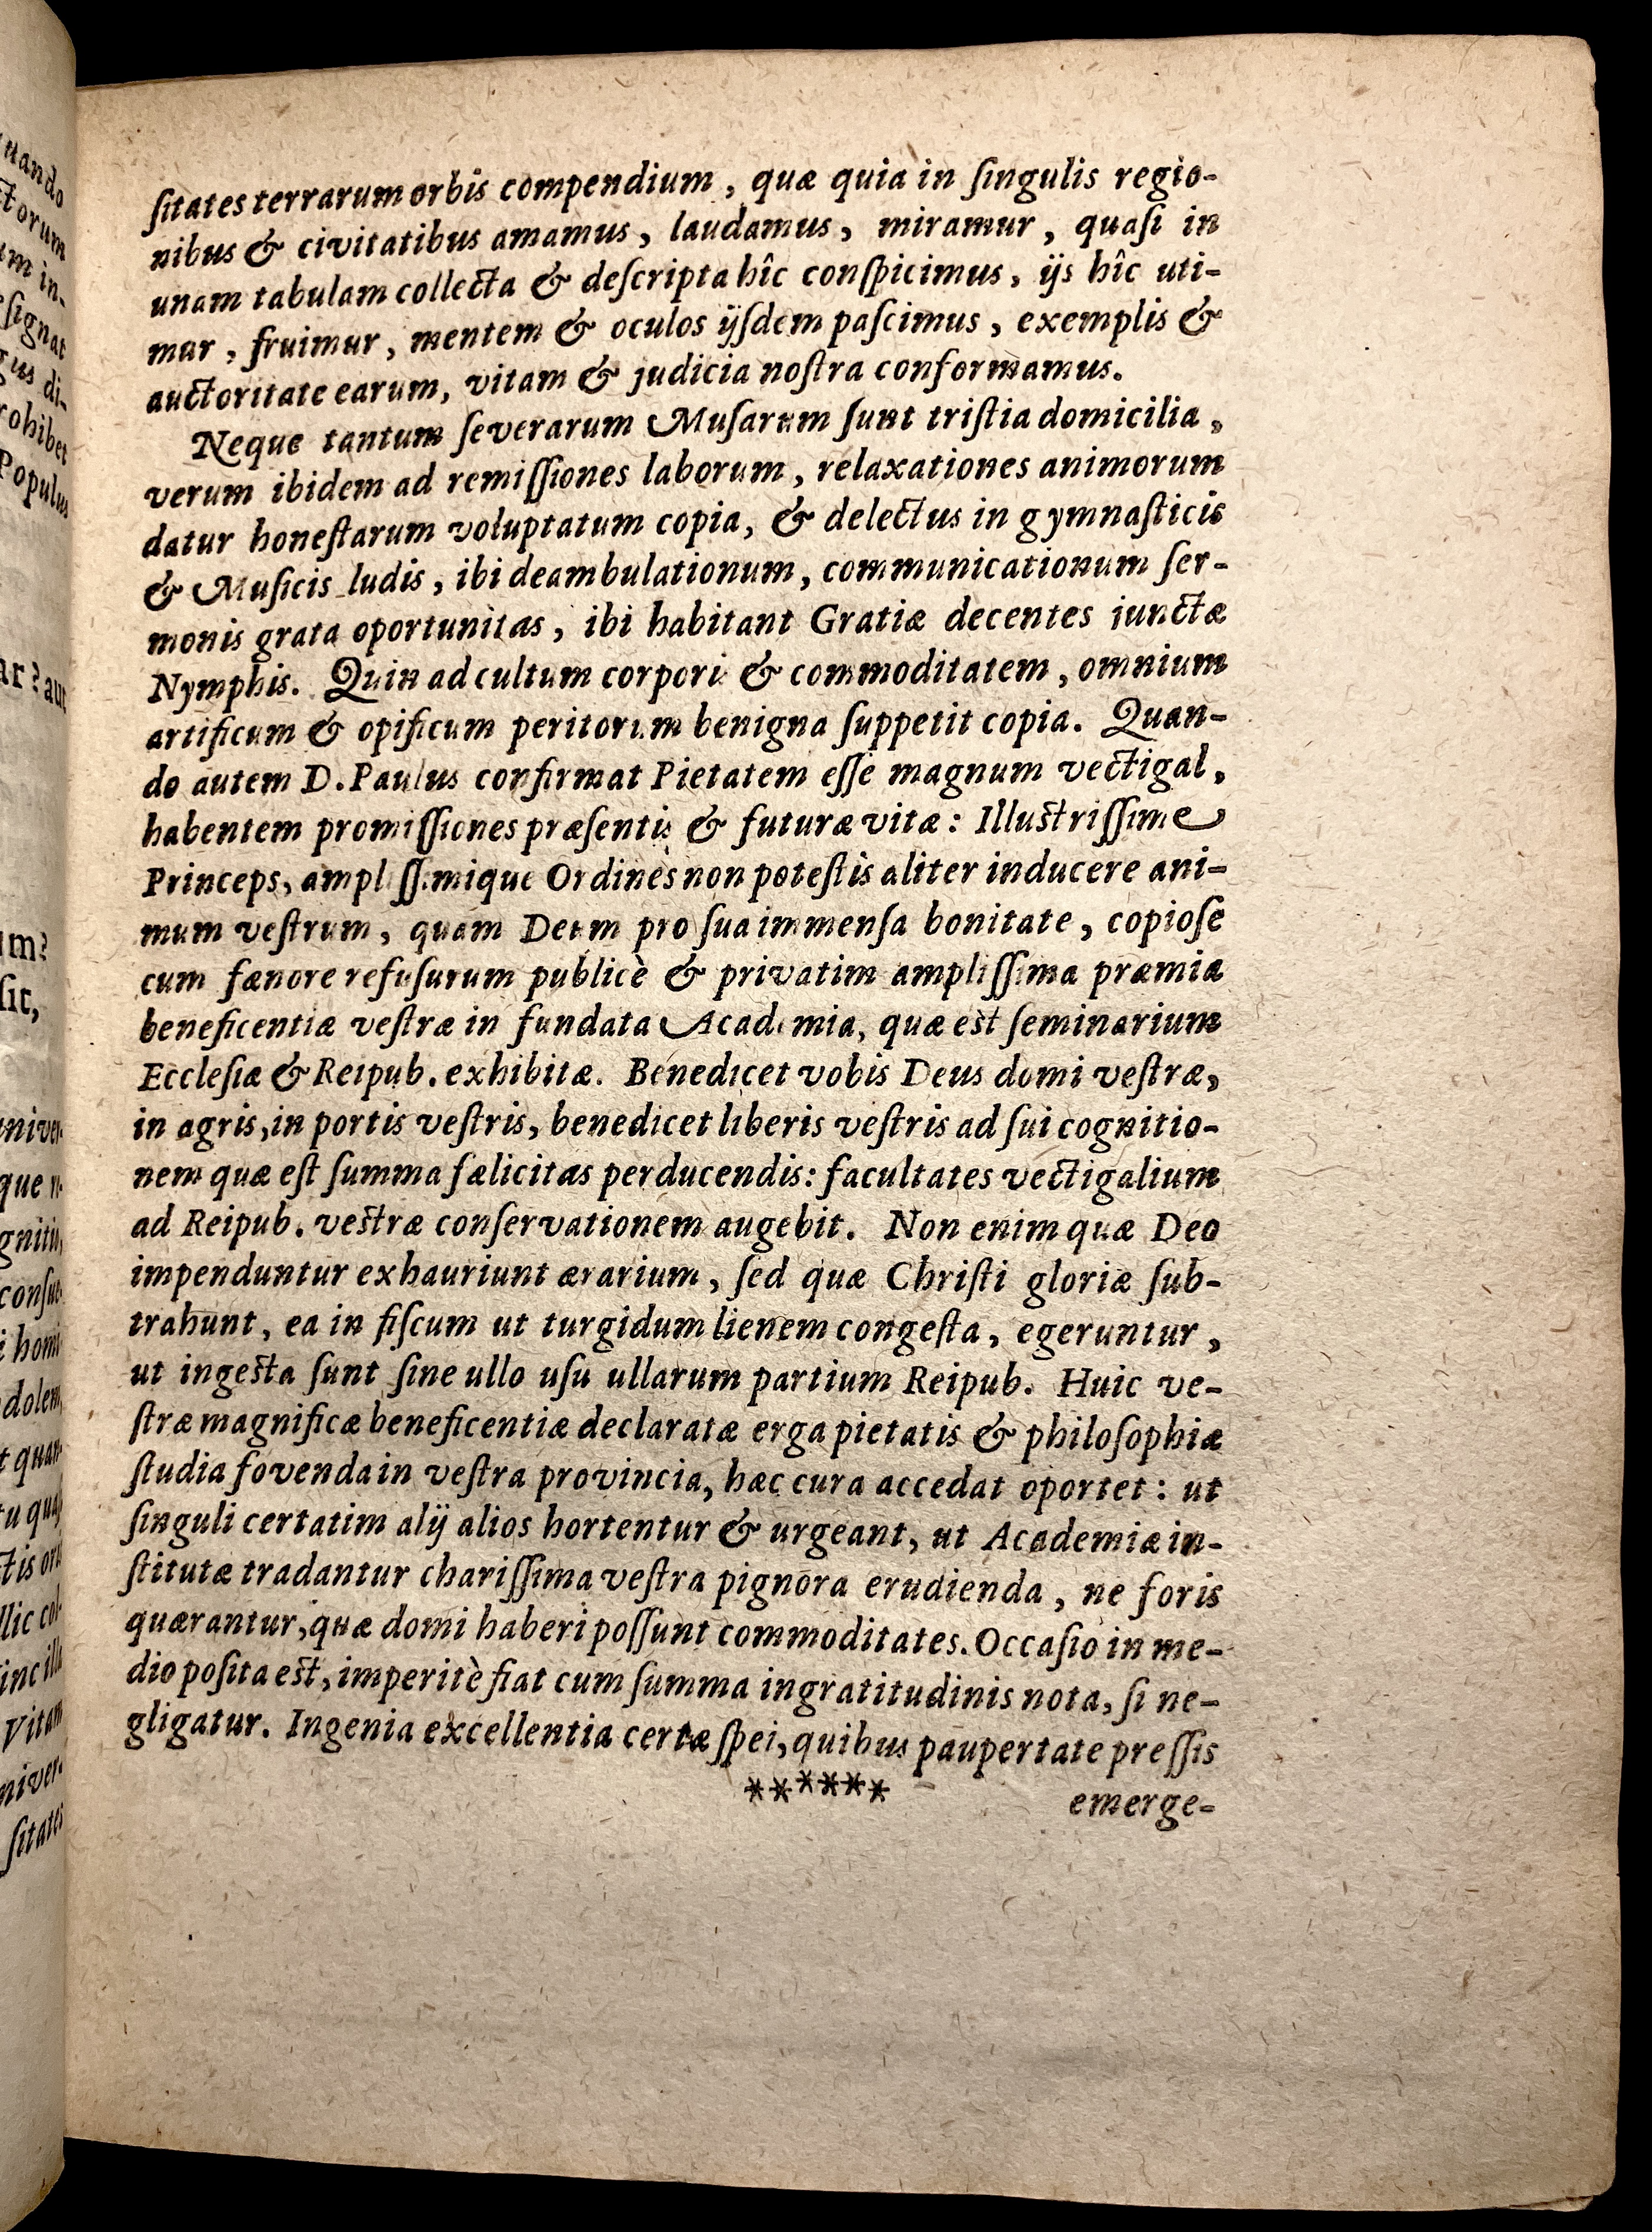 uando
ctorum
um in-
ſignat
gus di-
rohibet
Populus
ar? aut
um?
ſit,
univer-
que n-
gnitiu,
conſue-
i homi-
dolem,
t quan-
tu quaſ
ctis ori
llic col-
inc illa
Vitam
niver-
ſitates
ſitates terrarum orbis compendium, quæ quia in ſingulis regio-
nibus & civitatibus amamus, laudamus, miramur, quaſi in
unam tabulam collecta & deſcripta hîc conſpicimus, ijs hîc uti-
mur, fruimur, mentem & oculos ijſdem paſcimus, exemplis &
auctoritate earum, vitam & judicia noſtra conformamus.
Neque tantum ſeverarum Muſarum ſunt triſtia domicilia,
verum ibidem ad remiſſiones laborum, relaxationes animorum
datur honeſtarum voluptatum copia, & delectus in gymnaſticis
& Muſicis ludis, ibi deambulationum, communicationum ſer-
monis grata oportunitas, ibi habitant Gratiæ decentes iunctæ
Nymphis. Quin ad cultum corpori & commoditatem, omnium
artificum & opificum peritorum benigna ſuppetit copia. Quan-
do autem D. Paulus confirmat Pietatem eſſe magnum vectigal,
habentem promiſſiones præſentis & futuræ vitæ: Illuſtriſſime
Princeps, ampliſſimique Ordines non poteſtis aliter inducere ani-
mum veſtrum, quam Deum pro ſua immenſa bonitate, copioſe
cum fænore refuſurum publicè & privatim ampliſſima præmia
beneficentiæ veſtræ in fundata Academia, quæ eſt ſeminarium
Eccleſiæ & Reipub. exhibitæ. Benedicet vobis Deus domi veſtræ,
in agris, in portis veſtris, benedicet liberis veſtris ad ſui cognitio-
nem quæ eſt ſumma fælicitas perducendis: facultates vectigalium
ad Reipub. veſtræ conſervationem augebit. Non enim quæ Deo
impenduntur exhauriunt ærarium, ſed quæ Chriſti gloriæ ſub-
trahunt, ea in fiſcum ut turgidum lienem congeſta, egeruntur,
ut ingeſta ſunt ſine ullo uſu ullarum partium Reipub. Huic ve-
ſtræ magnificæ beneficentiæ declaratæ erga pietatis & philoſophiæ
ſtudia fovenda in veſtra provincia, hæc cura accedat oportet: ut
ſinguli certatim alij alios hortentur & urgeant, ut Academiæ in-
ſtitutæ tradantur chariſſima veſtra pignora erudienda, ne foris
quærantur, quæ domi haberi poſſunt commoditates. Occaſio in me-
dio poſita eſt, imperitè fiat cum ſumma ingratitudinis nota, ſi ne-
gligatur. Ingenia excellentia certæ ſpei, quibus paupertate preſſis
****** emerge-